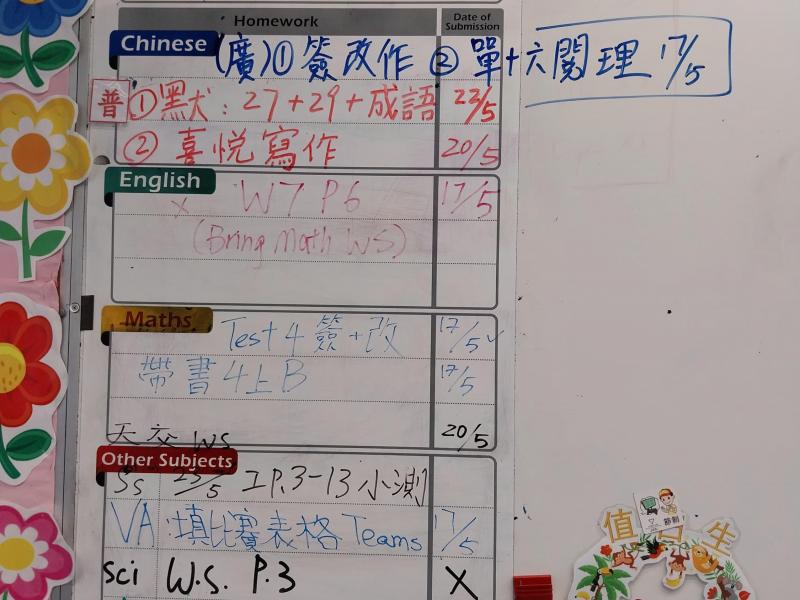 Homework Date of Submission
Chinese (廣)① 簽改作 ② 單十六閱理 17/5
普 ①默: 27+29+成語 23/5
② 喜悅寫作 20/5
English
x W7 P6 17/5
(Bring Math WS)
Maths
Test 4 簽+改 17/5✓
帶書4上B 17/5
天交 WS 20/5
Other Subjects
Ss 23/5 工P.3-13 小測
VA 填比賽表格 Teams 17/5
sci W.S. P.3 X
值日生